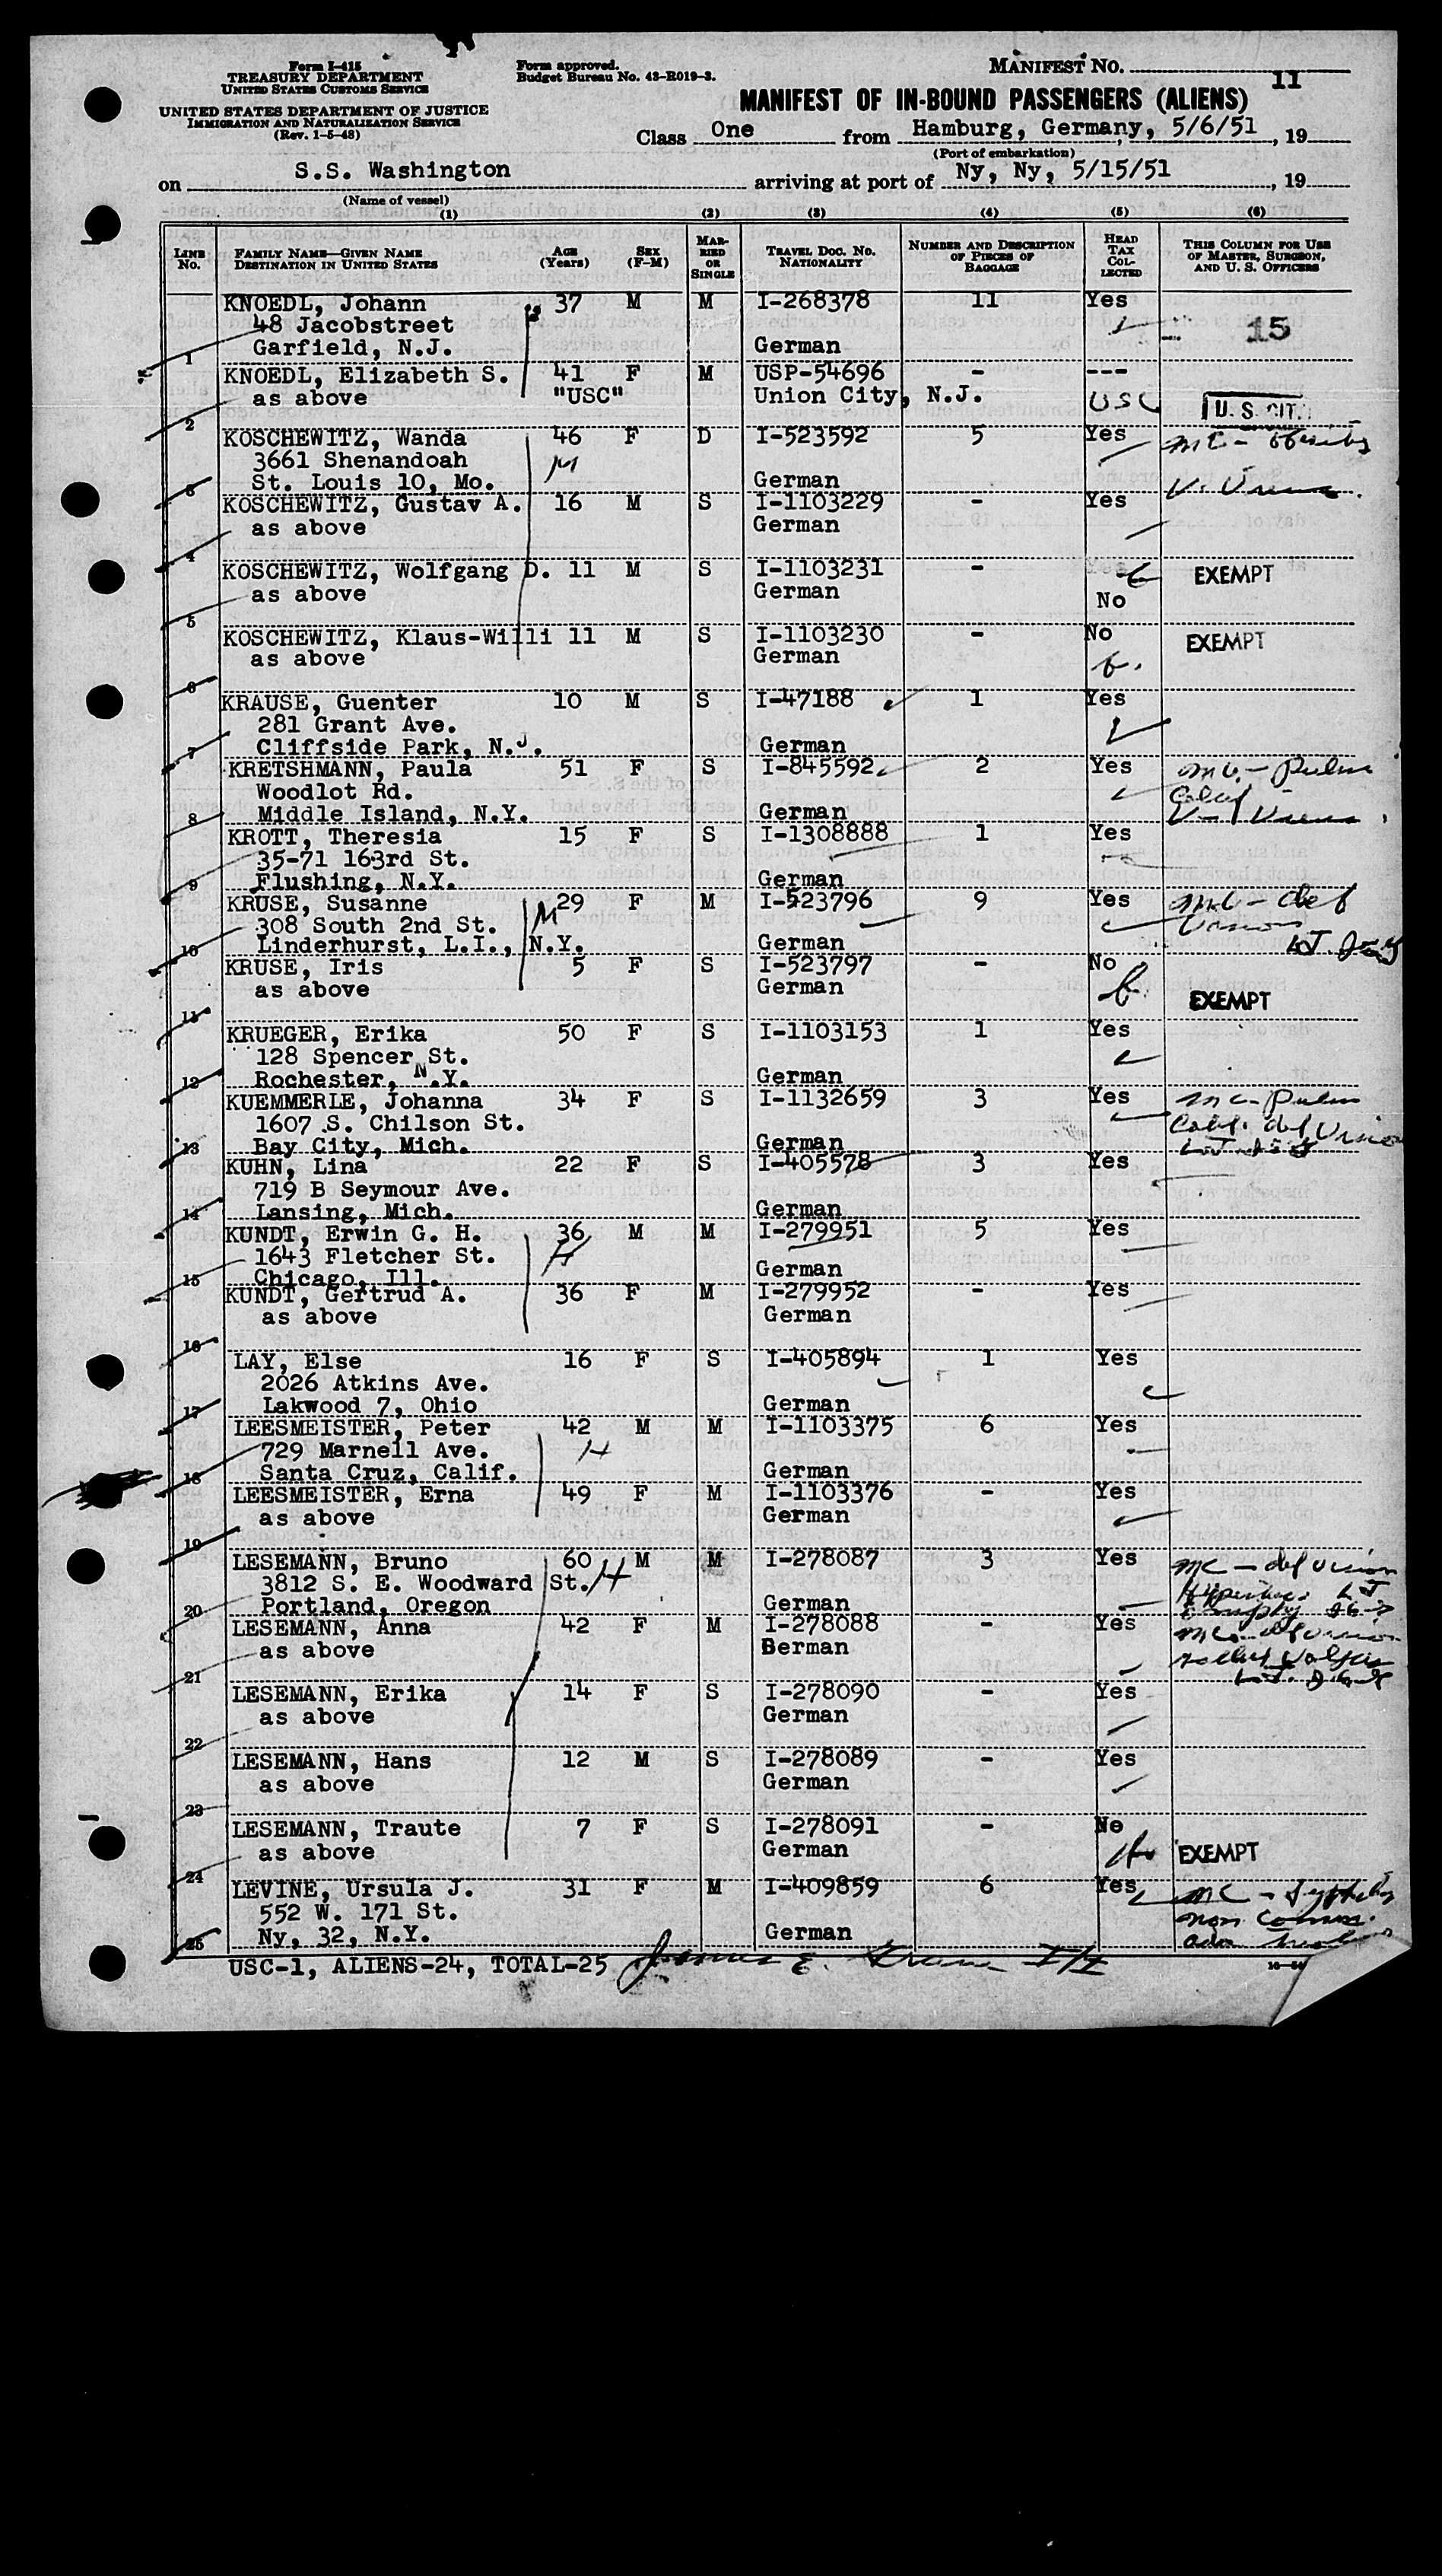 Form I-415
TREASURY DEPARTMENT
UNITED STATES CUSTOMS SERVICE
UNITED STATES DEPARTMENT OF JUSTICE
IMMIGRATION AND NATURALIZATION SERVICE
(Rev. 1-5-48)
Form approved.
Budget Bureau No. 43-R019-3.
MANIFEST NO.
11
MANIFEST OF IN-BOUND PASSENGERS (ALIENS)
Class One from Hamburg, Germany, 5/6/51, 19
(Port of embarkation)
on S.S. Washington arriving at port of Ny, Ny, 5/15/51, 19
(Name of vessel)
(1) (2) (3) (4) (5) (6)
LINE No. FAMILY NAME—GIVEN NAME DESTINATION IN UNITED STATES AGE (Years) SEX (F-M) MARRIED OR SINGLE TRAVEL DOC. NO. NATIONALITY NUMBER AND DESCRIPTION OF PIECES OF BAGGAGE HEAD TAX COLLECTED THIS COLUMN FOR USE OF MASTER, SURGEON, AND U. S. OFFICERS
KNOEDL, Johann 37 M M I-268378 11 Yes
48 Jacobstreet 15
1 Garfield, N.J. German
KNOEDL, Elizabeth S. 41 F M USP-54696 - ---
2 as above "USC" Union City, N.J. USC U. S. CIT.
KOSCHEWITZ, Wanda 46 F D I-523592 5 Yes mc - obesity
3661 Shenandoah M
3 St. Louis 10, Mo. German V.
KOSCHEWITZ, Gustav A. 16 M S I-1103229 - Yes
4 as above German
KOSCHEWITZ, Wolfgang D. 11 M S I-1103231 - EXEMPT
5 as above German No
KOSCHEWITZ, Klaus-Willi 11 M S I-1103230 - No EXEMPT
6 as above German
KRAUSE, Guenter 10 M S I-47188 1 Yes
281 Grant Ave.
7 Cliffside Park, N.J. German
KRETSHMANN, Paula 51 F S I-845592 2 Yes mc - Pulm
Woodlot Rd. Calcif
8 Middle Island, N.Y. German
KROTT, Theresia 15 F S I-1308888 1 Yes
35-71 163rd St.
9 Flushing, N.Y. German
KRUSE, Susanne M 29 F M I-523796 9 Yes mc - def
308 South 2nd St. Vision
10 Linderhurst, L.I., N.Y. German
KRUSE, Iris 5 F S I-523797 - No
11 as above German EXEMPT
KRUEGER, Erika 50 F S I-1103153 1 Yes
128 Spencer St.
12 Rochester, N.Y. German
KUEMMERLE, Johanna 34 F S I-1132659 3 Yes mc - Pulm
1607 S. Chilson St. Calcif. def Vision
13 Bay City, Mich. German
KUHN, Lina 22 F S I-405578 3 Yes
719 B Seymour Ave.
14 Lansing, Mich. German
KUNDT, Erwin G. H. 36 M M I-279951 5 Yes
1643 Fletcher St. H
15 Chicago, Ill. German
KUNDT, Gertrud A. 36 F M I-279952 - Yes
16 as above German
LAY, Else 16 F S I-405894 1 Yes
2026 Atkins Ave.
17 Lakwood 7, Ohio German
LEESMEISTER, Peter 42 M M I-1103375 6 Yes
729 Marnell Ave. H
18 Santa Cruz, Calif. German
LEESMEISTER, Erna 49 F M I-1103376 - Yes
19 as above German
LESEMANN, Bruno 60 M M I-278087 3 Yes mc - def vision
3812 S. E. Woodward St. H
20 Portland, Oregon German
LESEMANN, Anna 42 F M I-278088 - Yes mc - def vision
21 as above Berman
LESEMANN, Erika 14 F S I-278090 - Yes
22 as above German
LESEMANN, Hans 12 M S I-278089 - Yes
23 as above German
LESEMANN, Traute 7 F S I-278091 - No
24 as above German EXEMPT
LEVINE, Ursula J. 31 F M I-409859 6 Yes mc - Syphilis
552 W. 171 St. non comm.
25 Ny, 32, N.Y. German
USC-1, ALIENS-24, TOTAL-25 James E.